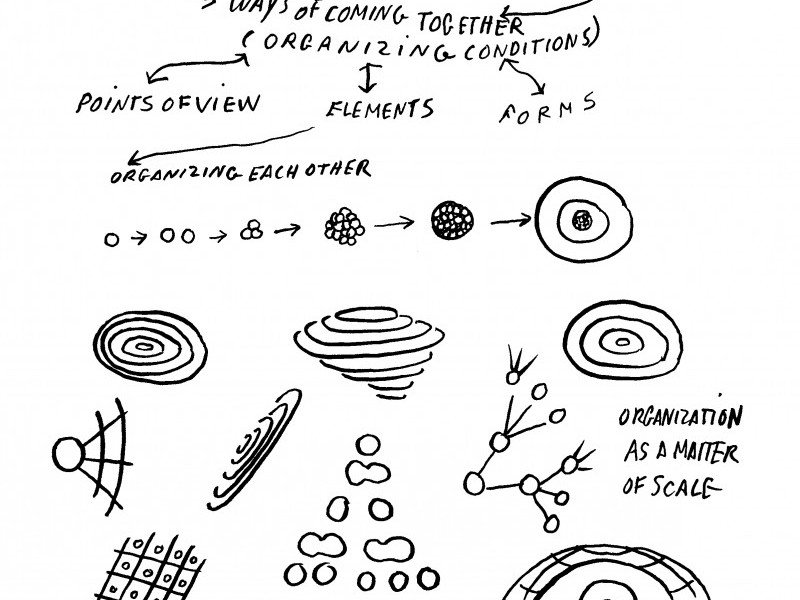 > WAYS OF COMING TOGETHER
(ORGANIZING CONDITIONS)
POINTS OF VIEW
ELEMENTS
FORMS
ORGANIZING EACH OTHER
ORGANIZATION
AS A MATTER
OF SCALE